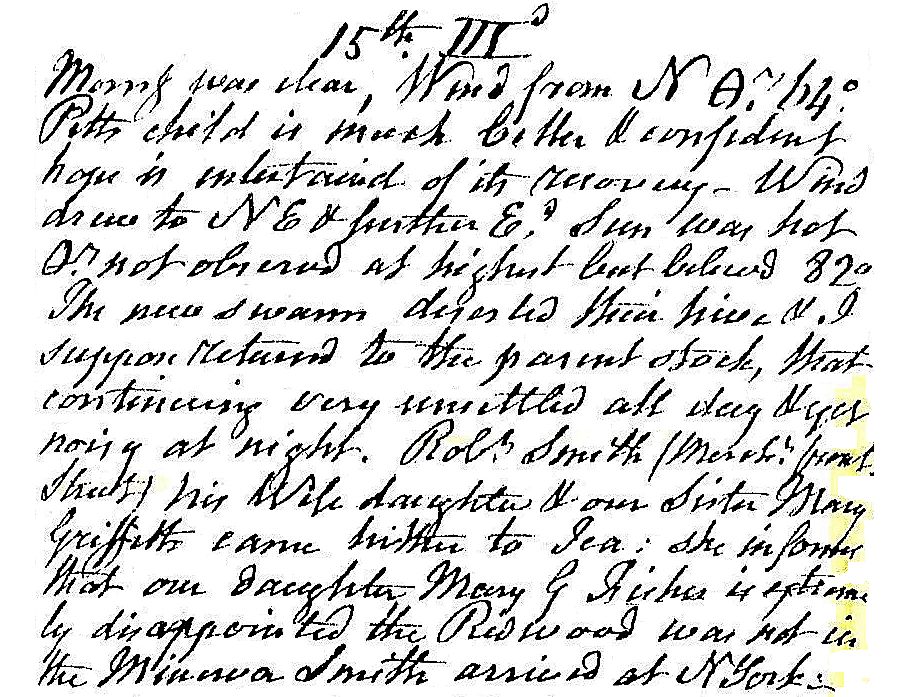 15th. IIId
Morng was clear, Wind from N Ar. 64°
Petts child is much better & confident
hope is entertained of its recovery – Wind
drew to N E & further Ed. Sun was hot
Ar. not observed at highest but believed 82°
The new swarm deserted their hive & I
suppose returned to the parent stock, that
continuing very unsettled all day & yet
noisy at night. Robt. Smith (Mercht. Front
Street) his Wife daughter & our Sister Mary
Griffitts came hither to Tea: she informs
that our daughter Mary G Fisher is extreme
ly disappointed the Redwood was not in
the Minerva Smith arrived at N York: